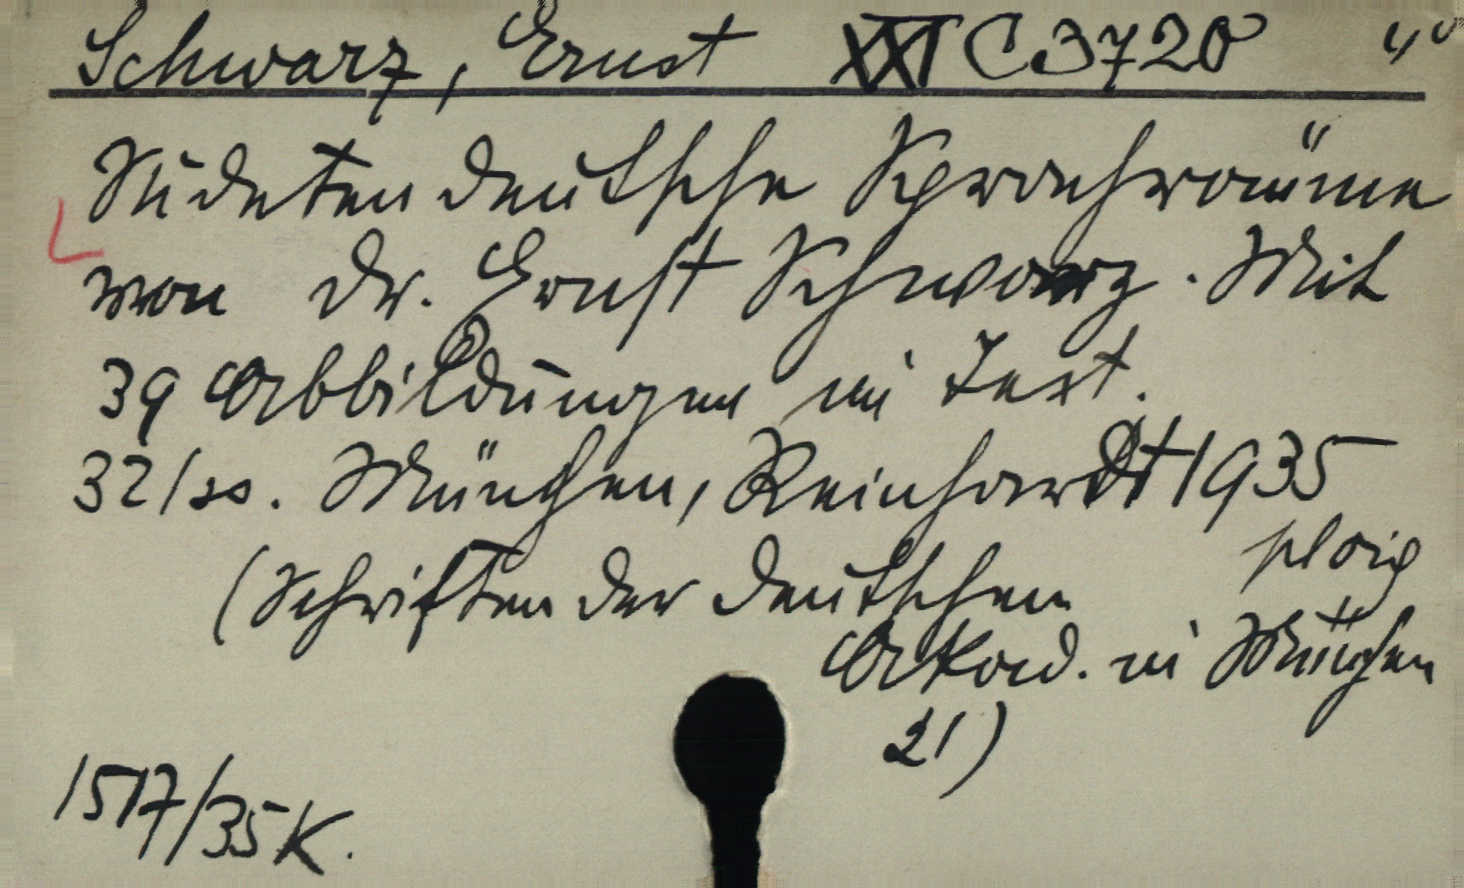 Schwarz, Ernst XXI C 3720 4°
Sudetendeutsche Sprachräume
von Dr. Ernst Schwarz. Mit
39 Abbildungen im Text.
321 ss. München, Reinhardt 1935
(Schriften der Deutschen
Akad. in München
21)
1517/35 K.